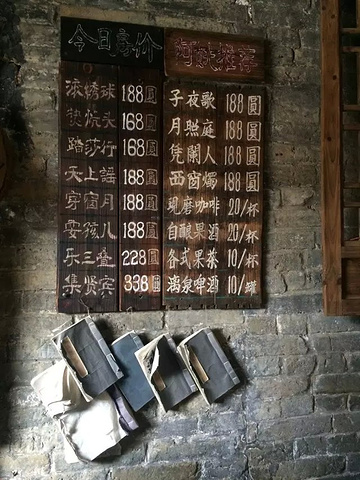 今日房价
滚绣球 188圆
头 168圆
踏莎行 168圆
天上謡 188圆
穿窗月 188圆
耍孩儿 188圆
乐三叠 228圆
集贤宾 338圆
推荐
子夜歌 188圓
月照庭 188圓
凭闌人 188圓
西窗燭 188圓
现磨咖啡 20/杯
自酿果酒 20/杯
各式果茶 10/杯
漓泉啤酒 10/罐